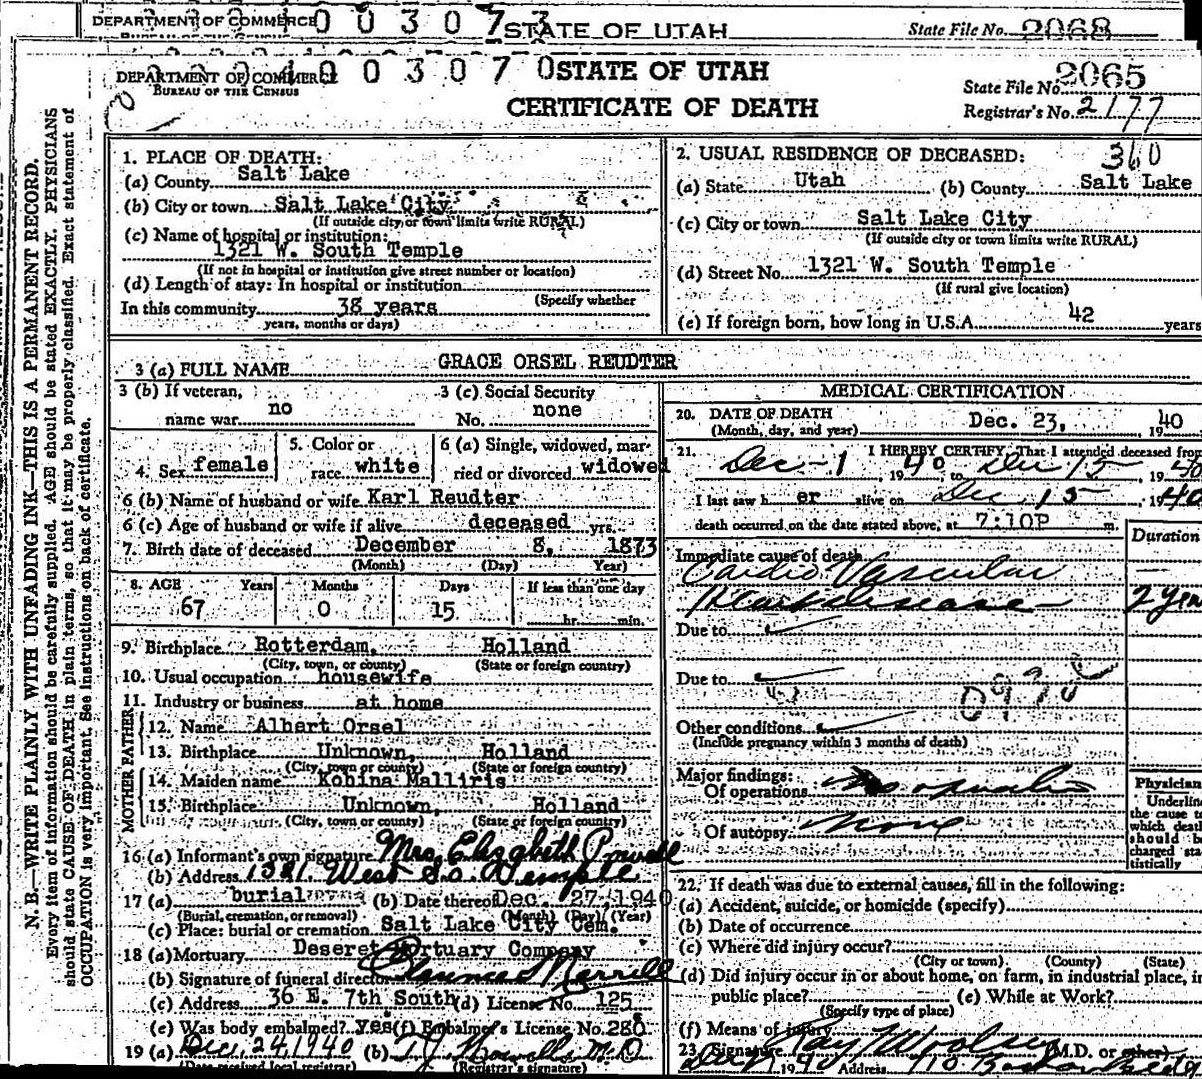 DEPARTMENT OF COMMERCE
STATE OF UTAH
State File No. 2068
003073
003070
DEPARTMENT OF COMMERCE
BUREAU OF THE CENSUS
STATE OF UTAH
CERTIFICATE OF DEATH
State File No. 2065
Registrar's No. 2177
N. B.—WRITE PLAINLY WITH UNFADING INK—THIS IS A PERMANENT RECORD.
Every item of information should be carefully supplied. AGE should be stated EXACTLY. PHYSICIANS
should state CAUSE OF DEATH in plain terms, so that it may be properly classified. Exact statement of
OCCUPATION is very important. See instructions on back of certificate.
1. PLACE OF DEATH:
(a) County Salt Lake
(b) City or town Salt Lake City
(If outside city or town limits write RURAL)
(c) Name of hospital or institution:
1321 W. South Temple
(If not in hospital or institution give street number or location)
(d) Length of stay: In hospital or institution
(Specify whether
In this community 38 years
years, months or days)
2. USUAL RESIDENCE OF DECEASED: 360
(a) State Utah (b) County Salt Lake
(c) City or town Salt Lake City
(If outside city or town limits write RURAL)
(d) Street No. 1321 W. South Temple
(If rural give location)
(e) If foreign born, how long in U.S.A. 42 years
3 (a) FULL NAME GRACE ORSEL REUDTER
3 (b) If veteran, name war no
3 (c) Social Security No. none
4. Sex female
5. Color or race white
6 (a) Single, widowed, married or divorced widowed
6 (b) Name of husband or wife Karl Reudter
6 (c) Age of husband or wife if alive deceased yrs.
7. Birth date of deceased December 8, 1873
(Month) (Day) Year)
8. AGE Years Months Days If less than one day
67 0 15 hr. min.
9. Birthplace Rotterdam, Holland
(City, town, or county) (State or foreign country)
10. Usual occupation housewife
11. Industry or business at home
FATHER
12. Name Albert Orsel
13. Birthplace Unknown, Holland
(City, town or county) (State or foreign country)
MOTHER
14. Maiden name Kobina Malliris
15. Birthplace Unknown, Holland
(City, town or county) (State or foreign country)
16 (a) Informant's own signature Mrs. Elizabeth Powell
(b) Address 1321 West So. Temple
17 (a) burial (b) Date thereof Dec. 27, 1940
(Burial, cremation, or removal) (Month) (Day) (Year)
(c) Place: burial or cremation Salt Lake City Cem.
18 (a) Mortuary Deseret Mortuary Company
(b) Signature of funeral director
(c) Address 36 E. 7th South (d) License No. 125
(e) Was body embalmed? yes (f) Embalmer's License No. 286
19 (a) Dec. 24, 1940 (b)
(Date received local registrar) (Registrar's signature)
MEDICAL CERTIFICATION
20. DATE OF DEATH Dec. 23, 1940
(Month, day, and year)
21. I HEREBY CERTIFY, That I attended deceased from
Dec - 1 1940, to Dec 15, 1940
I last saw h er alive on Dec. 15 - 1940
death occurred on the date stated above, at 7:10P m.
Duration
Immediate cause of death
Cardio Vascular
Heart disease - 2 Years
Due to
Due to
Other conditions
(Include pregnancy within 3 months of death)
Major findings:
Of operations No operation
Of autopsy None
Physician
Underline
the cause to
which death
should be
charged sta-
tistically
22. If death was due to external causes, fill in the following:
(a) Accident, suicide, or homicide (specify)
(b) Date of occurrence
(c) Where did injury occur?
(City or town) (County) (State)
(d) Did injury occur in or about home, on farm, in industrial place, in
public place? (e) While at Work?
(Specify type of place)
(f) Means of injury
23. Signature Ray Woolsey (M.D. or other)
1940 Address 110